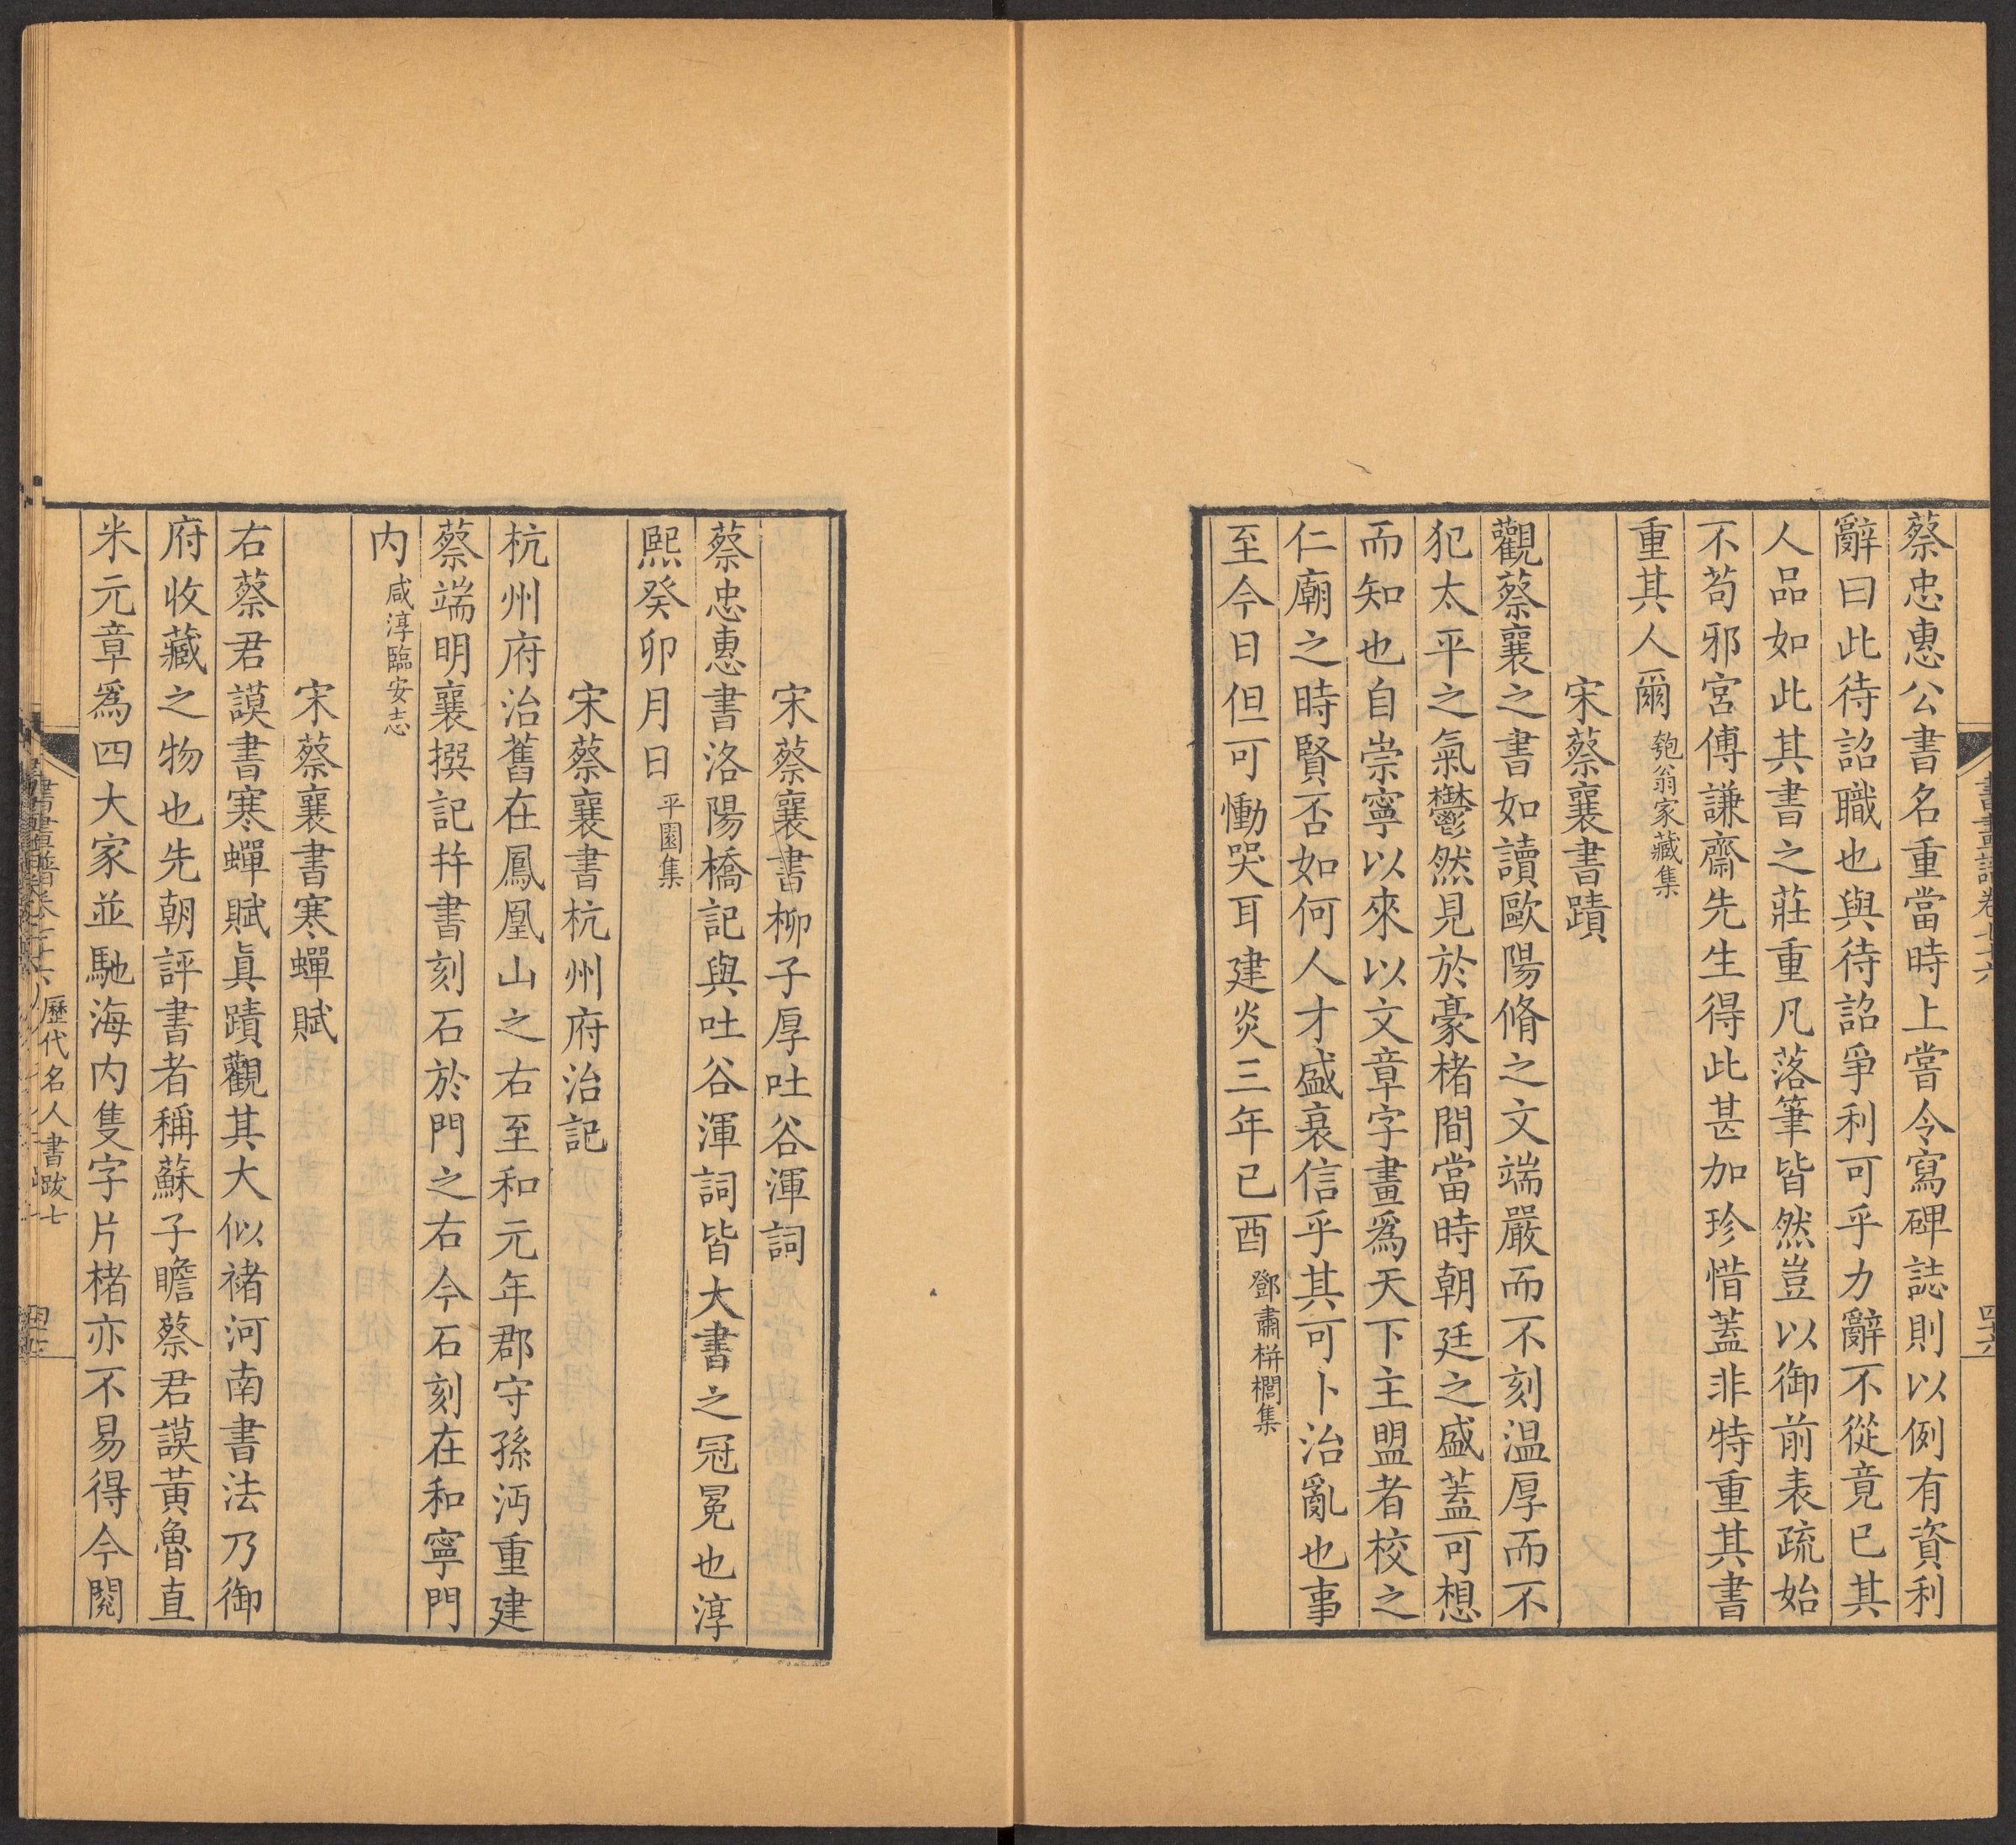 蔡忠惠公書名重當時上嘗令寫碑誌則以例有資利
辭曰此待詔職也與待詔爭利可乎力辭不從竟已其
人品如此其書之莊重凡落筆皆然豈以御前表疏始
不苟邪宮傅謙齋先生得此甚加珍惜蓋非特重其書
重其人爾 匏翁家藏集
宋蔡襄書蹟
觀蔡襄之書如讀歐陽脩之文端嚴而不刻温厚而不
犯太平之氣鬱然見於豪楮間當時朝廷之盛蓋可想
而知也自崇寧以來以文章字畫爲天下主盟者校之
仁廟之時賢否如何人才盛衰信乎其可卜治亂也事
至今日但可慟哭耳建炎三年已酉 鄧肅栟櫚集
宋蔡襄書柳子厚吐谷渾詞
蔡忠惠書洛陽橋記與吐谷渾詞皆大書之冠冕也淳
熙癸卯月日 平園集
宋蔡襄書杭州府治記
杭州府治舊在鳳凰山之右至和元年郡守孫沔重建
蔡端明襄撰記幷書刻石於門之右今石刻在和寧門
内 咸淳臨安志
宋蔡襄書寒蟬賦
右蔡君謨書寒蟬賦眞蹟觀其大似褚河南書法乃御
府收藏之物也先朝評書者稱蘇子瞻蔡君謨黃魯直
米元章爲四大家並馳海内隻字片楮亦不易得今閱
書畫譜卷七十六 歷代名人書跋七